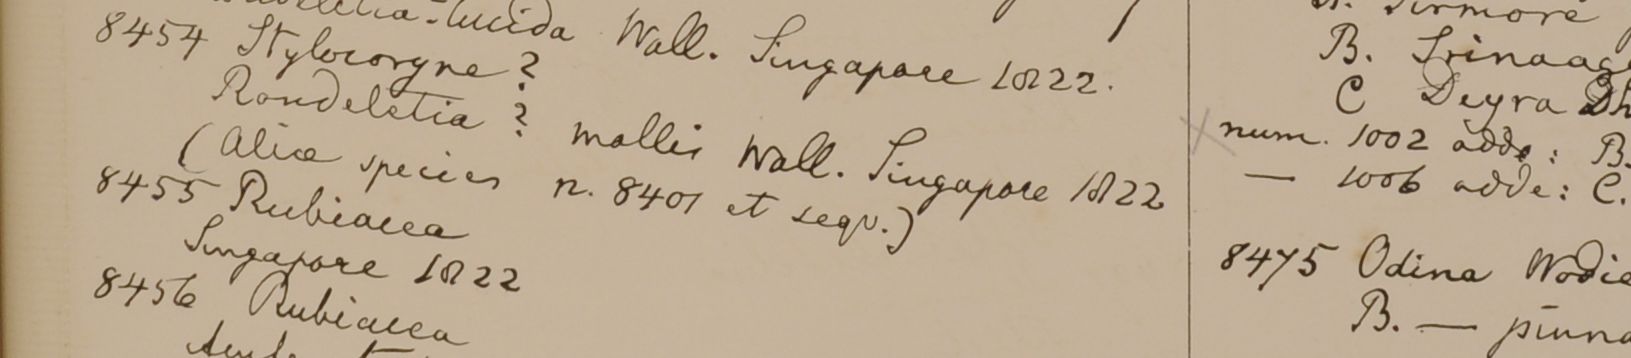 lucida Wall. Singapore 1822.
8454 Stylocoryne?
Rondeletia? mollis Wall. Singapore 1822
(aliae species n. 8401 et sequ.)
8455 Rubiacea
Singapore 1822
8456 Rubiacea
B. Srinaag
C Deyra Dh
num. 1002 adde: B.
— 1006 adde: C.
8475 Odina Wodie
B. — pinna